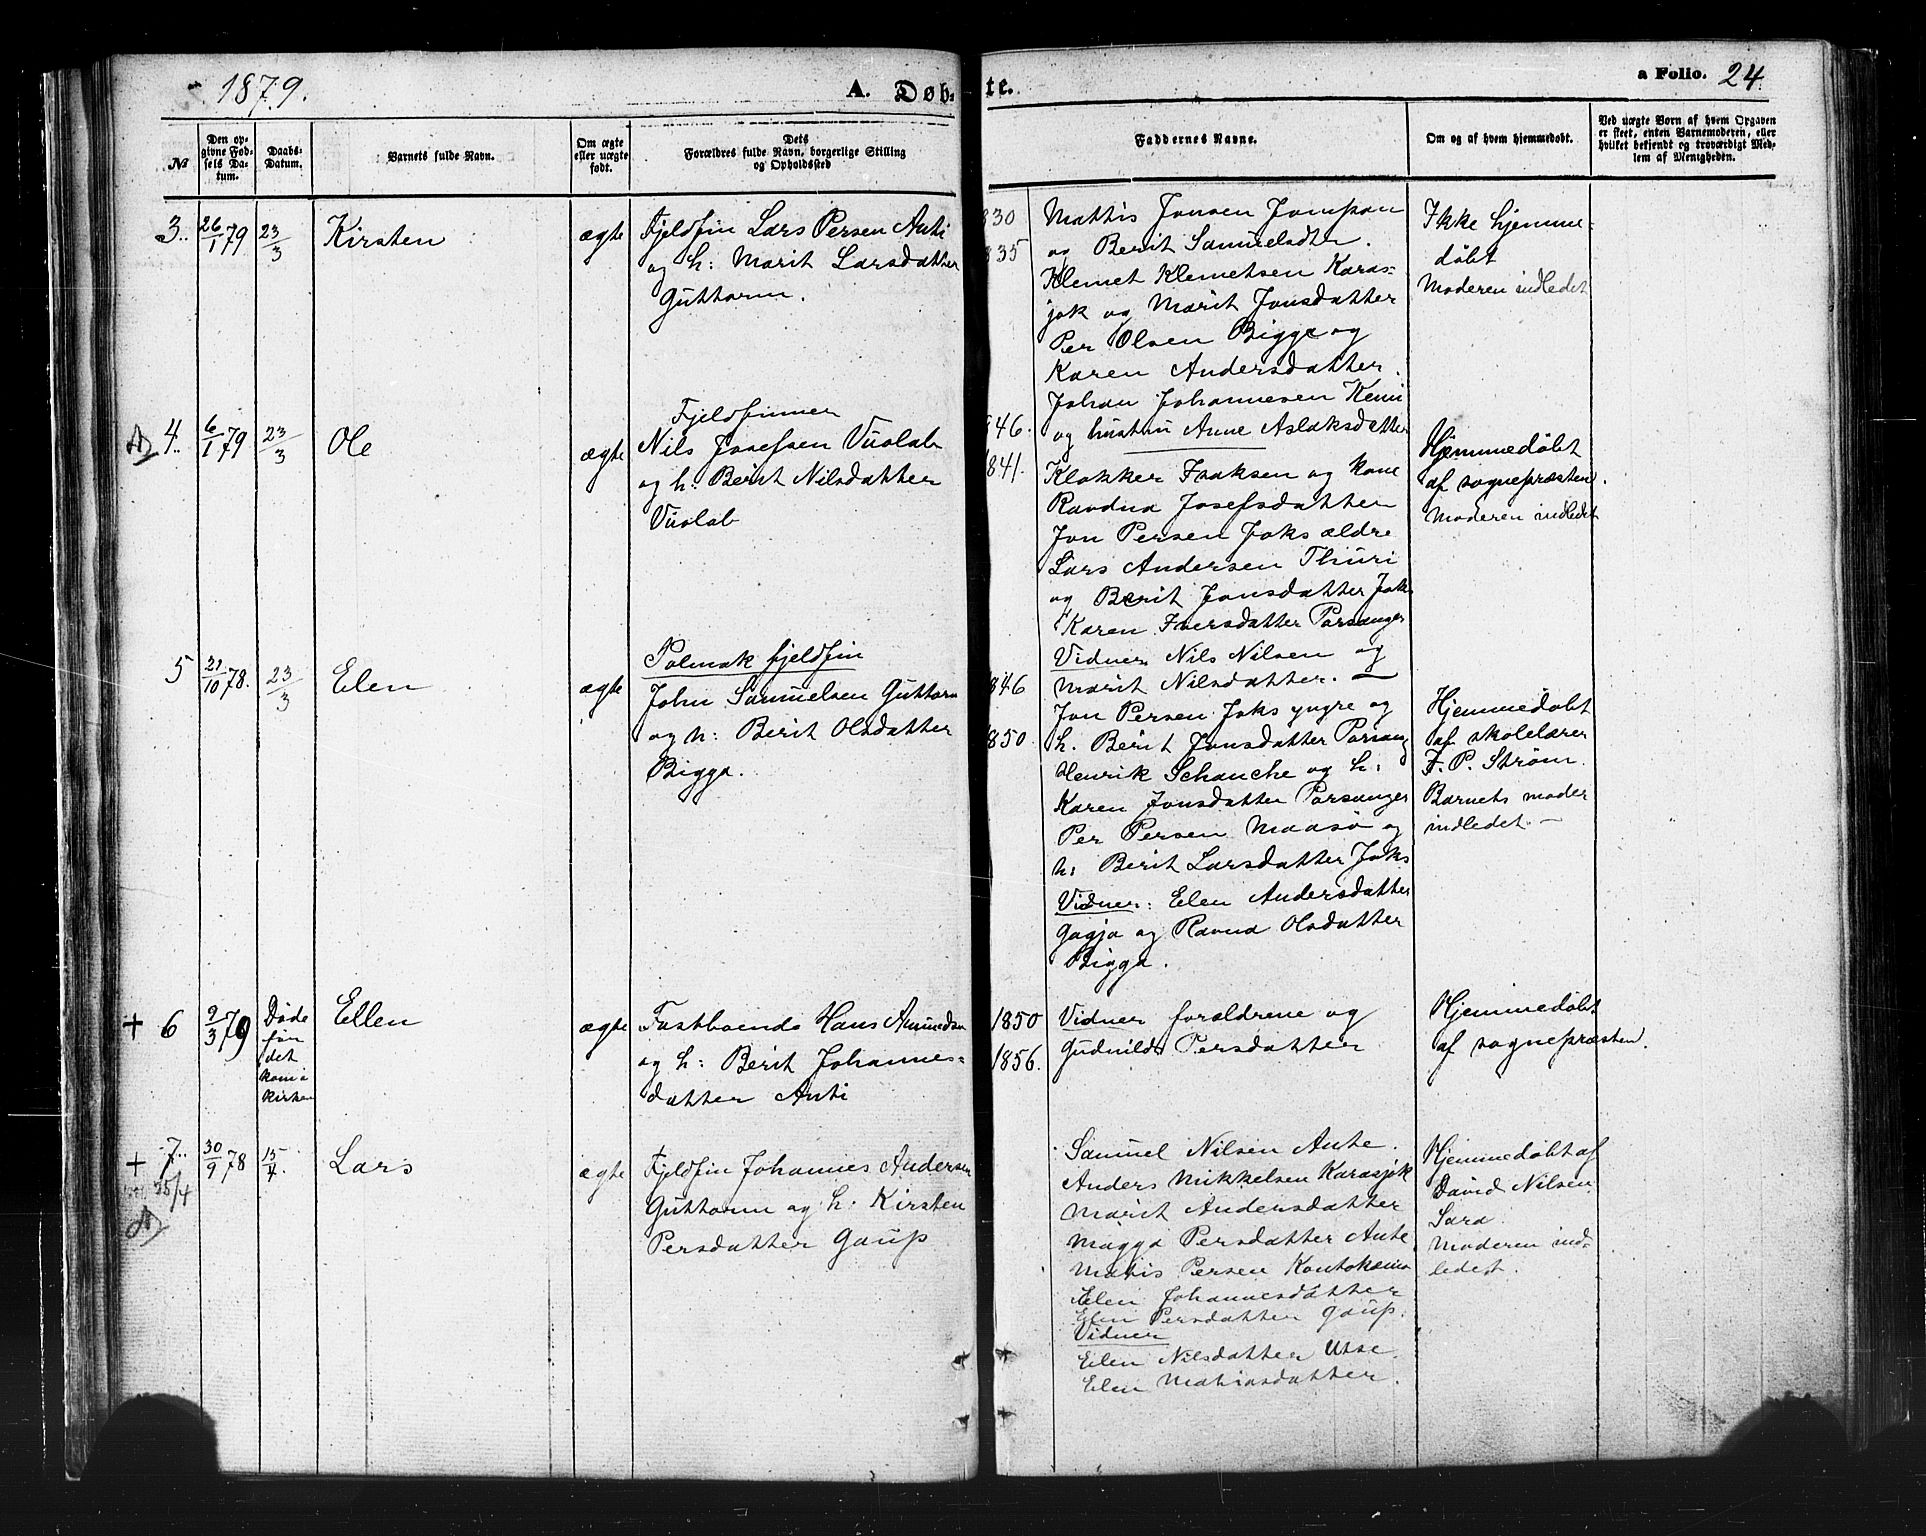 1879.
A. Døb-
te.
a Folio. 24.
№
Den op-
givne Fød-
sels Da-
tum.
Daabs-
Datum.
Barnets fulde Navn.
Om ægte
eller uægte
født.
Dets
Forældres fulde Navn, borgerlige Stilling
og Opholdssted
Faddernes Navne.
Om og af hvem hjemmedøbt.
Ved uægte Børn af hvem Opgaven
er skeet, enten Barnemoderen, eller
hvilket bekjendt og troværdigt Med-
lem af Menigheden.
3..
26/1 79
23/3
Kirsten
ægte
Fjeldfin Lars Persen Anti
og h: Marit Larsdatter
Guttorm.
830
835
Mattis Jonsen Jompan
og Berit Samuelsdter.
Klemet Klemetsen Karas-
jok og Marit Jonsdatter
Per Olsen Bigga og
Karen Andersdatter.
Johan Johannesen Kemi
og hustru Anne Aslaksdatter
Ikke hjemme-
døbt
Moderen indledet
4..
6/1 79
23/3
Ole
ægte
Fjeldfinner
Nils Josefsen Vuolab
og h: Berit Nilsdatter
Vuolab
846.
1841.
Klokker Isaksen og kone
Ravdna Josefsdatter
Jon Persen Joks ældre
Lars Andersen Thuri
og Berit Jonsdatter Joks
Karen Iversdatter Porsanger
Vidner Nils Nilsen og
Marit Nilsdatter. —
Hjemmedøbt
af sognepræsten.
Moderen indledet
5
21/10 78.
23/3
Elen
ægte
Polmak fjeldfin
John Samuelsen Guttorm
og h: Berit Olsdatter
Bigga.
846
1850.
Jon Persen Joks yngre og
h. Berit Jonsdatter Porsang
Henrik Schanche og h:
Karen Jonsdatter Porsanger
Per Persen Maasø og
h: Berit Larsdatter Joks
Vidner: Elen Andersdatter
Gagja og Ravna Olsdatter
Bigga.
Hjemmedøbt
af skolelærer
F. P. Strøm.
Barnets moder
indledet —
+ 6
9/3 79
Døde
før
det
kom i
kirken
Ellen
ægte
Fastboende Hans Amundsen
og h: Berit Johannes-
datter Anti
1850
1856.
Vidner forældrene og
Gudnild Persdatter
Hjemmedøbt
af sognepræsten.
+ 7..
25/4
30/9 78
15/4.
Lars
ægte
Fjeldfin Johannes Andersen
Guttorm og h: Kirsten
Persdatter Gaup
Samuel Nilsen Ante.
Anders Mikkelsen Karasjok
Marit Andersdatter
Magga Persdatter Ante
Mathis Persen Kautokeino
Elen Johannesdatter
Elen Persdatter Gaup.
Vidner
Elen Nilsdatter Utse
Elen Mathiasdatter.
Hjemmedøbt af
David Nilsen
Sara.
Moderen ind-
ledet.